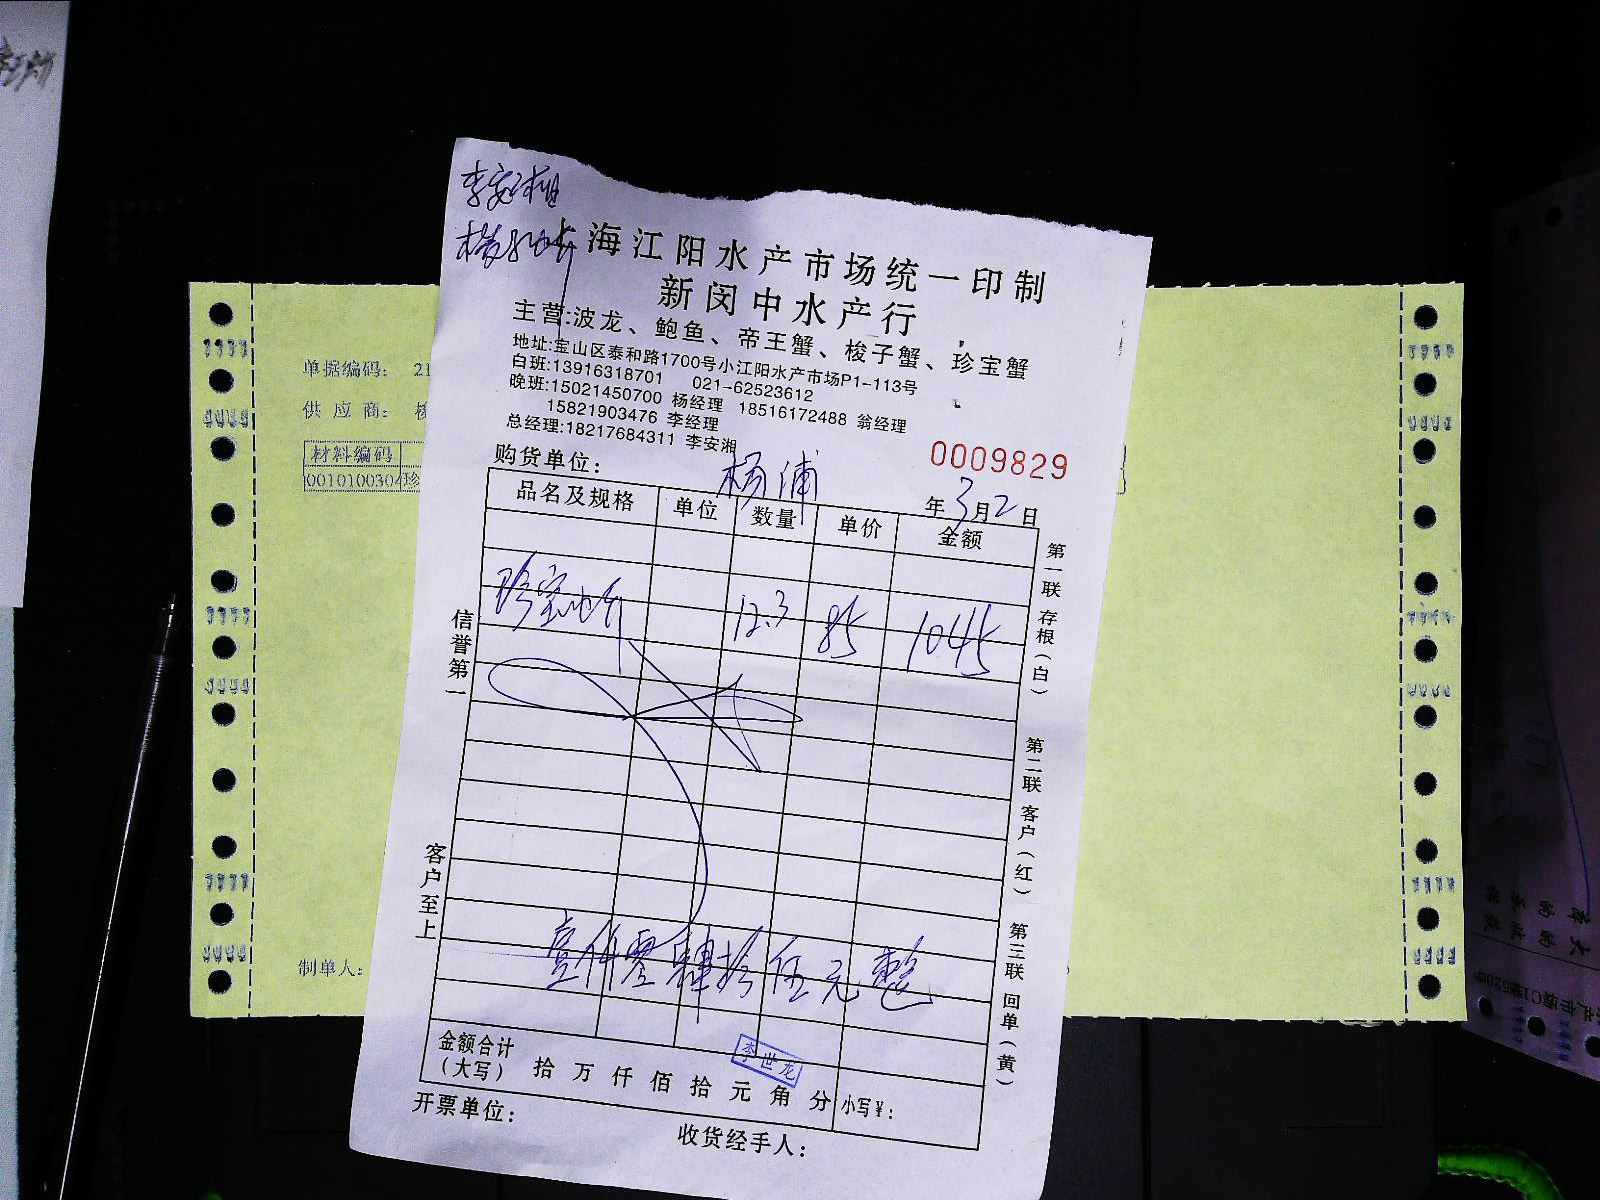 上海江阳水产市场统一印制
新闵中水产行
主营:波龙、鲍鱼、帝王蟹、梭子蟹、珍宝蟹
地址:宝山区泰和路1700号小江阳水产市场P1-113号
白班:13916318701 021-62523612
晚班:15021450700 杨经理 18516172488 翁经理
15821903476 李经理
总经理:18217684311 李安湘
0009829
购货单位: 杨浦
年3月2日
品名及规格 单位 数量 单价 金额
珍宝 12.3 85 1045
壹仟零肆拾伍元整
金额合计(大写) 拾 万 仟 佰 拾 元 角 分 小写¥:
李世龙
开票单位:
收货经手人:
信誉第一
客户至上
第一联 存根(白)
第二联 客户(红)
第三联 回单(黄)
单据编码: 21
供应商:
材料编码
0010100304 珍
制单人: